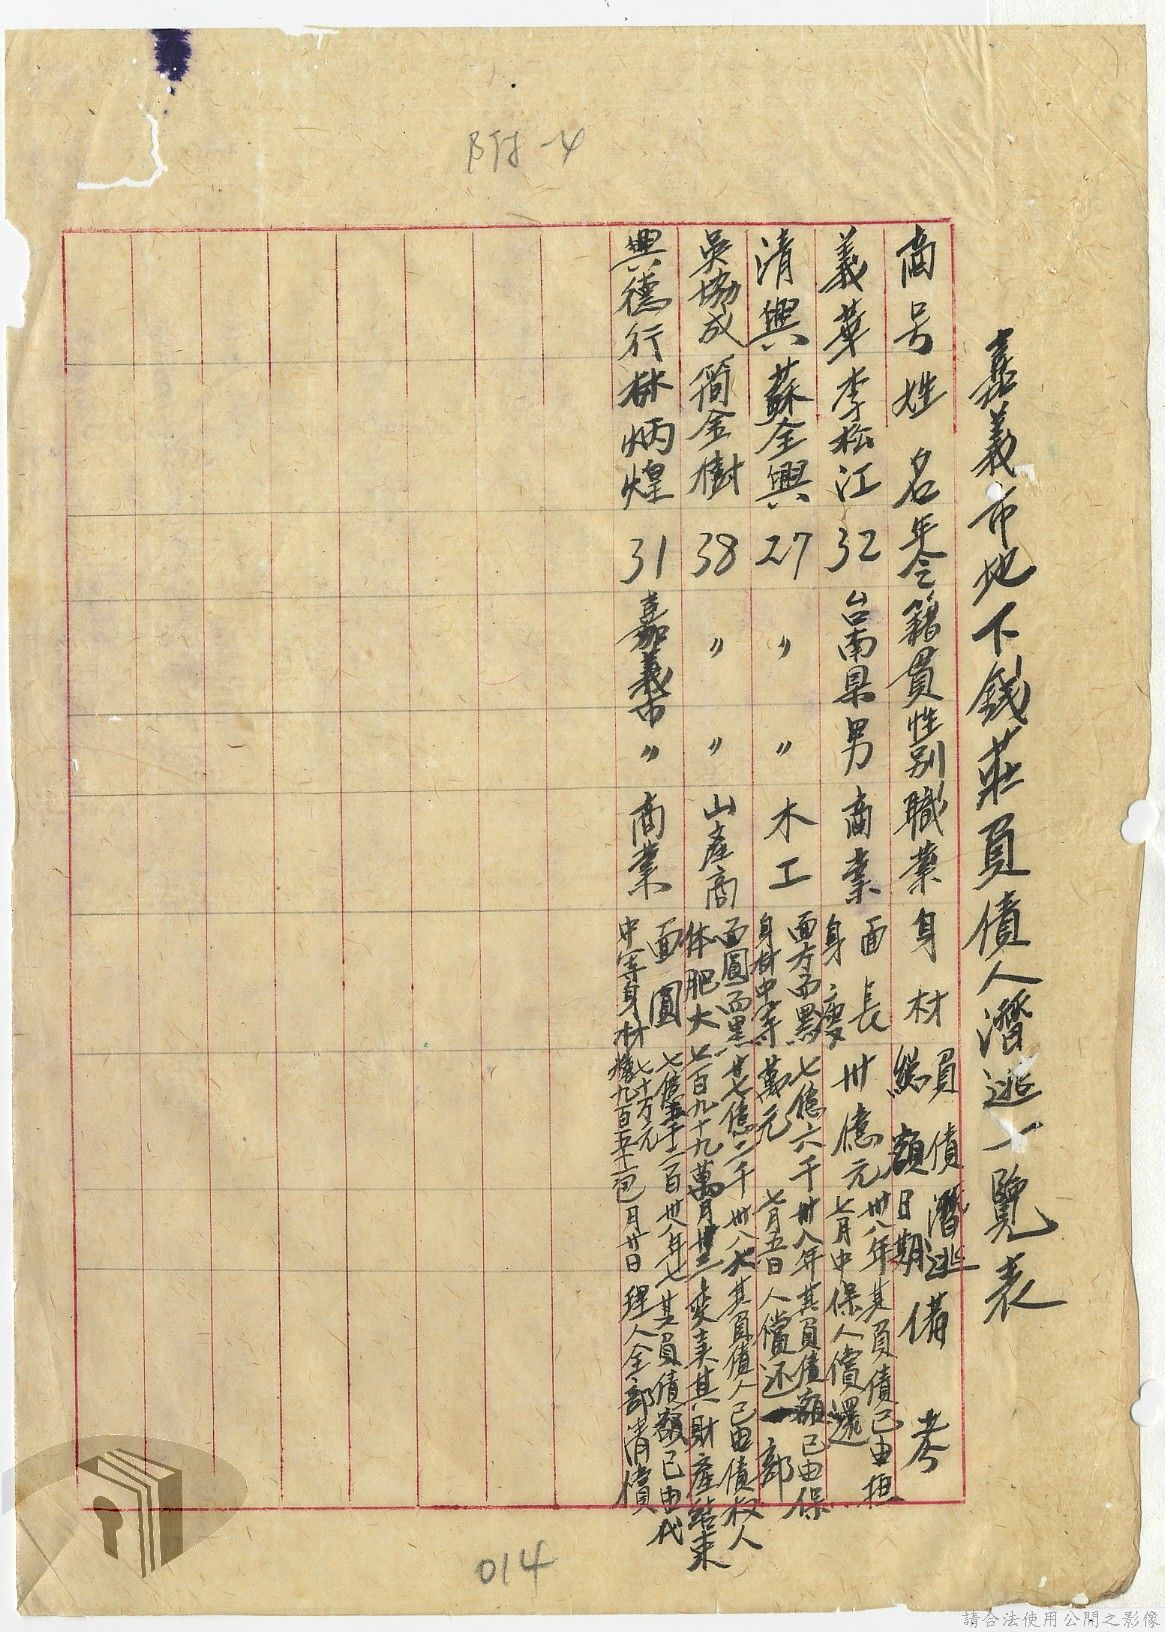 附-4
嘉義市地下錢莊負債人潛逃一覽表
商号 姓名 年令 籍貫 性別 職業 身材 負債總額 潛逃日期 備考
義華 李松江 32 台南県 男 商業 面長身瘦 卅億元 卅八年七月中 其負債已由担保人償還
清興 蘇全興 27 〃 〃 木工 面方而黑身材中等 七億六千萬元 卅八年七月五日 其負債額已由保人償还一部
吳協成 簡金樹 38 〃 〃 山產商 面圓而黑体肥大 廿七億二千七百九十九萬 卅八 月廿三 其負債人已由債权人變卖其財產結束
興德行 林炳煌 31 嘉義市 〃 商業 面圓中等身材 七億 千二百七十万元 糖九百五十二包 卅八年七月廿日 其負債額已由代理人全部清償
014
請合法使用公開之影像